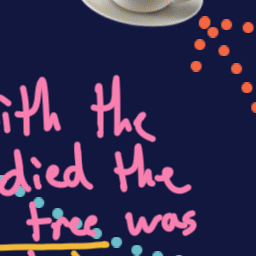 ith the
died the
tree was